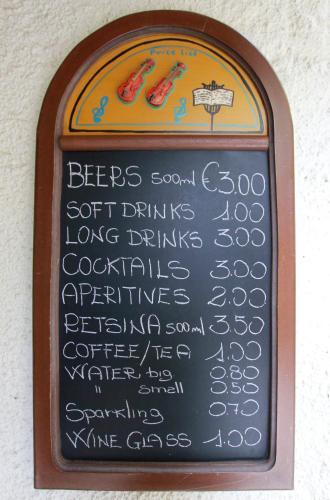 Price List
BEERS 500ml €3.00
SOFT DRINKS 1.00
LONG DRINKS 3.00
COCKTAILS 3.00
APERITIVES 2.00
RETSINA 500ml 3.50
COFFEE/TEA 1.00
WATER big 0.80
" small 0.50
Sparkling 0.70
WINE GLASS 1.00